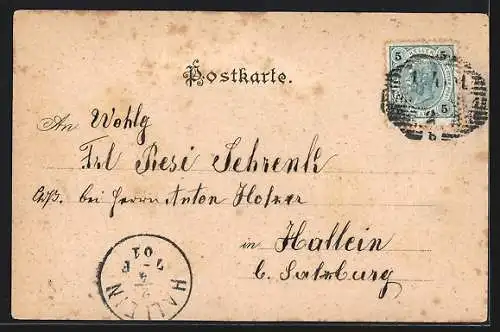 Postkarte.
5 5
5
An Wohlg
Frl Resi Schrenk
bei Herrn Anton Hofer
in Hallein
b. Salzburg
HALLEIN
7 - F
01